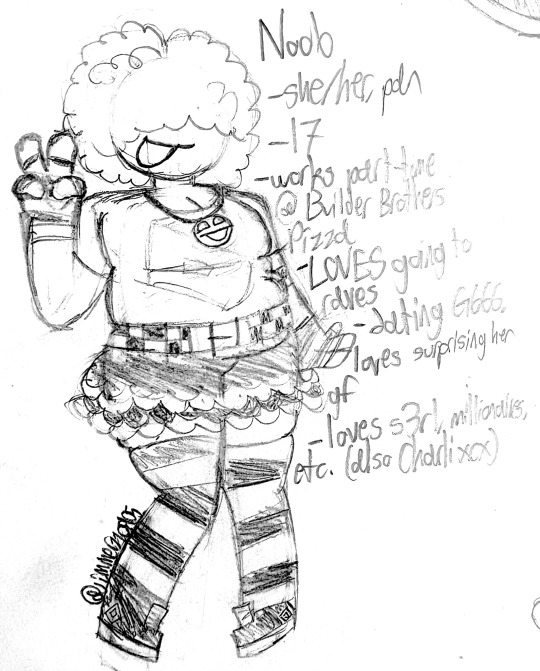 Noob
-she/her, pan
-17
-works part-time
@ Builder Brothers
Pizza
-LOVES going to
raves
-dating G1666.
loves surprising her
gf
-loves s3rl, millionaires,
etc. (also Charli xcx)